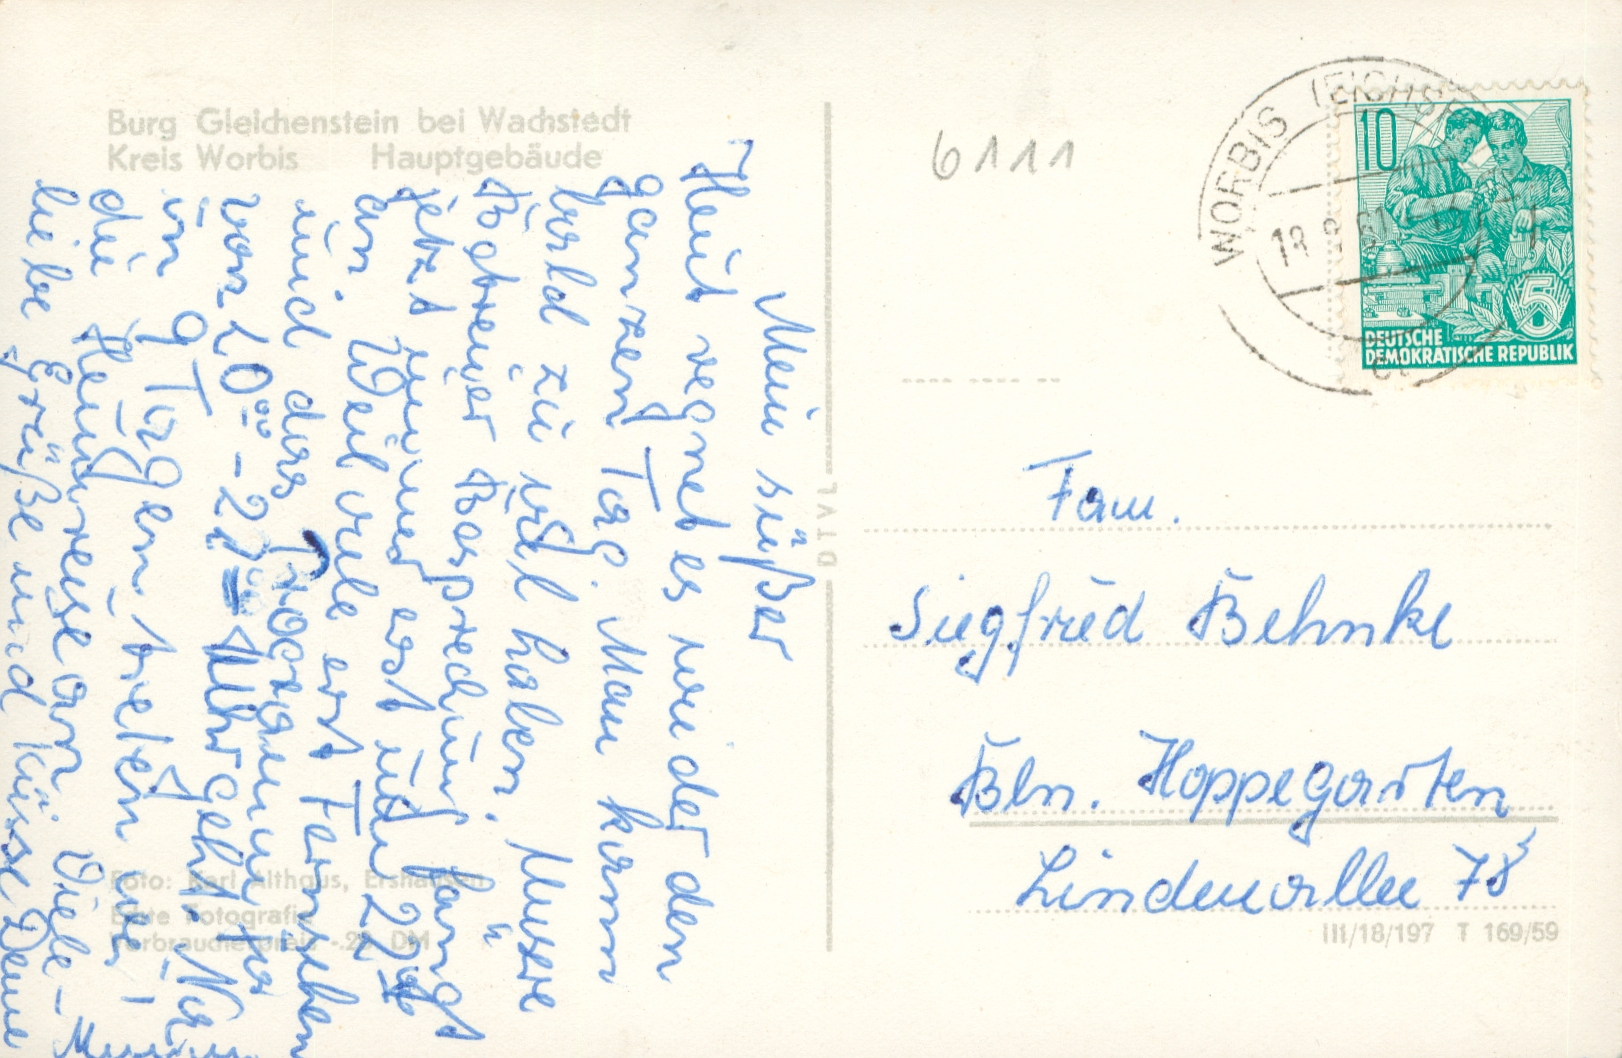 Burg Gleichenstein bei Wachstedt
Kreis Worbis Hauptgebäude
Mein süßer
Heut regnet es wieder den
ganzen Tag. Man kann
bald zu viel haben. Unsere
Betreuer Besprechung fängt
jetzt immer erst um 22°°
an. Weil viele erst Fernsehen
und das Programm
von 20°° - 22°° Uhr geht. Nur
in 9 Tagen treten wir
die Heimreise an. Viele
liebe Grüße und Küsse Deine
Foto: Karl Althaus, Ershausen
Echte Fotografie
Verbraucherpreis -.20 DM
DTVL
6111
WORBIS (EICHSF
10
5
DEUTSCHE
DEMOKRATISCHE REPUBLIK
Fam.
Siegfried Behnke
Bln. Hoppegarten
Lindenallee 78
III/18/197 T 169/59